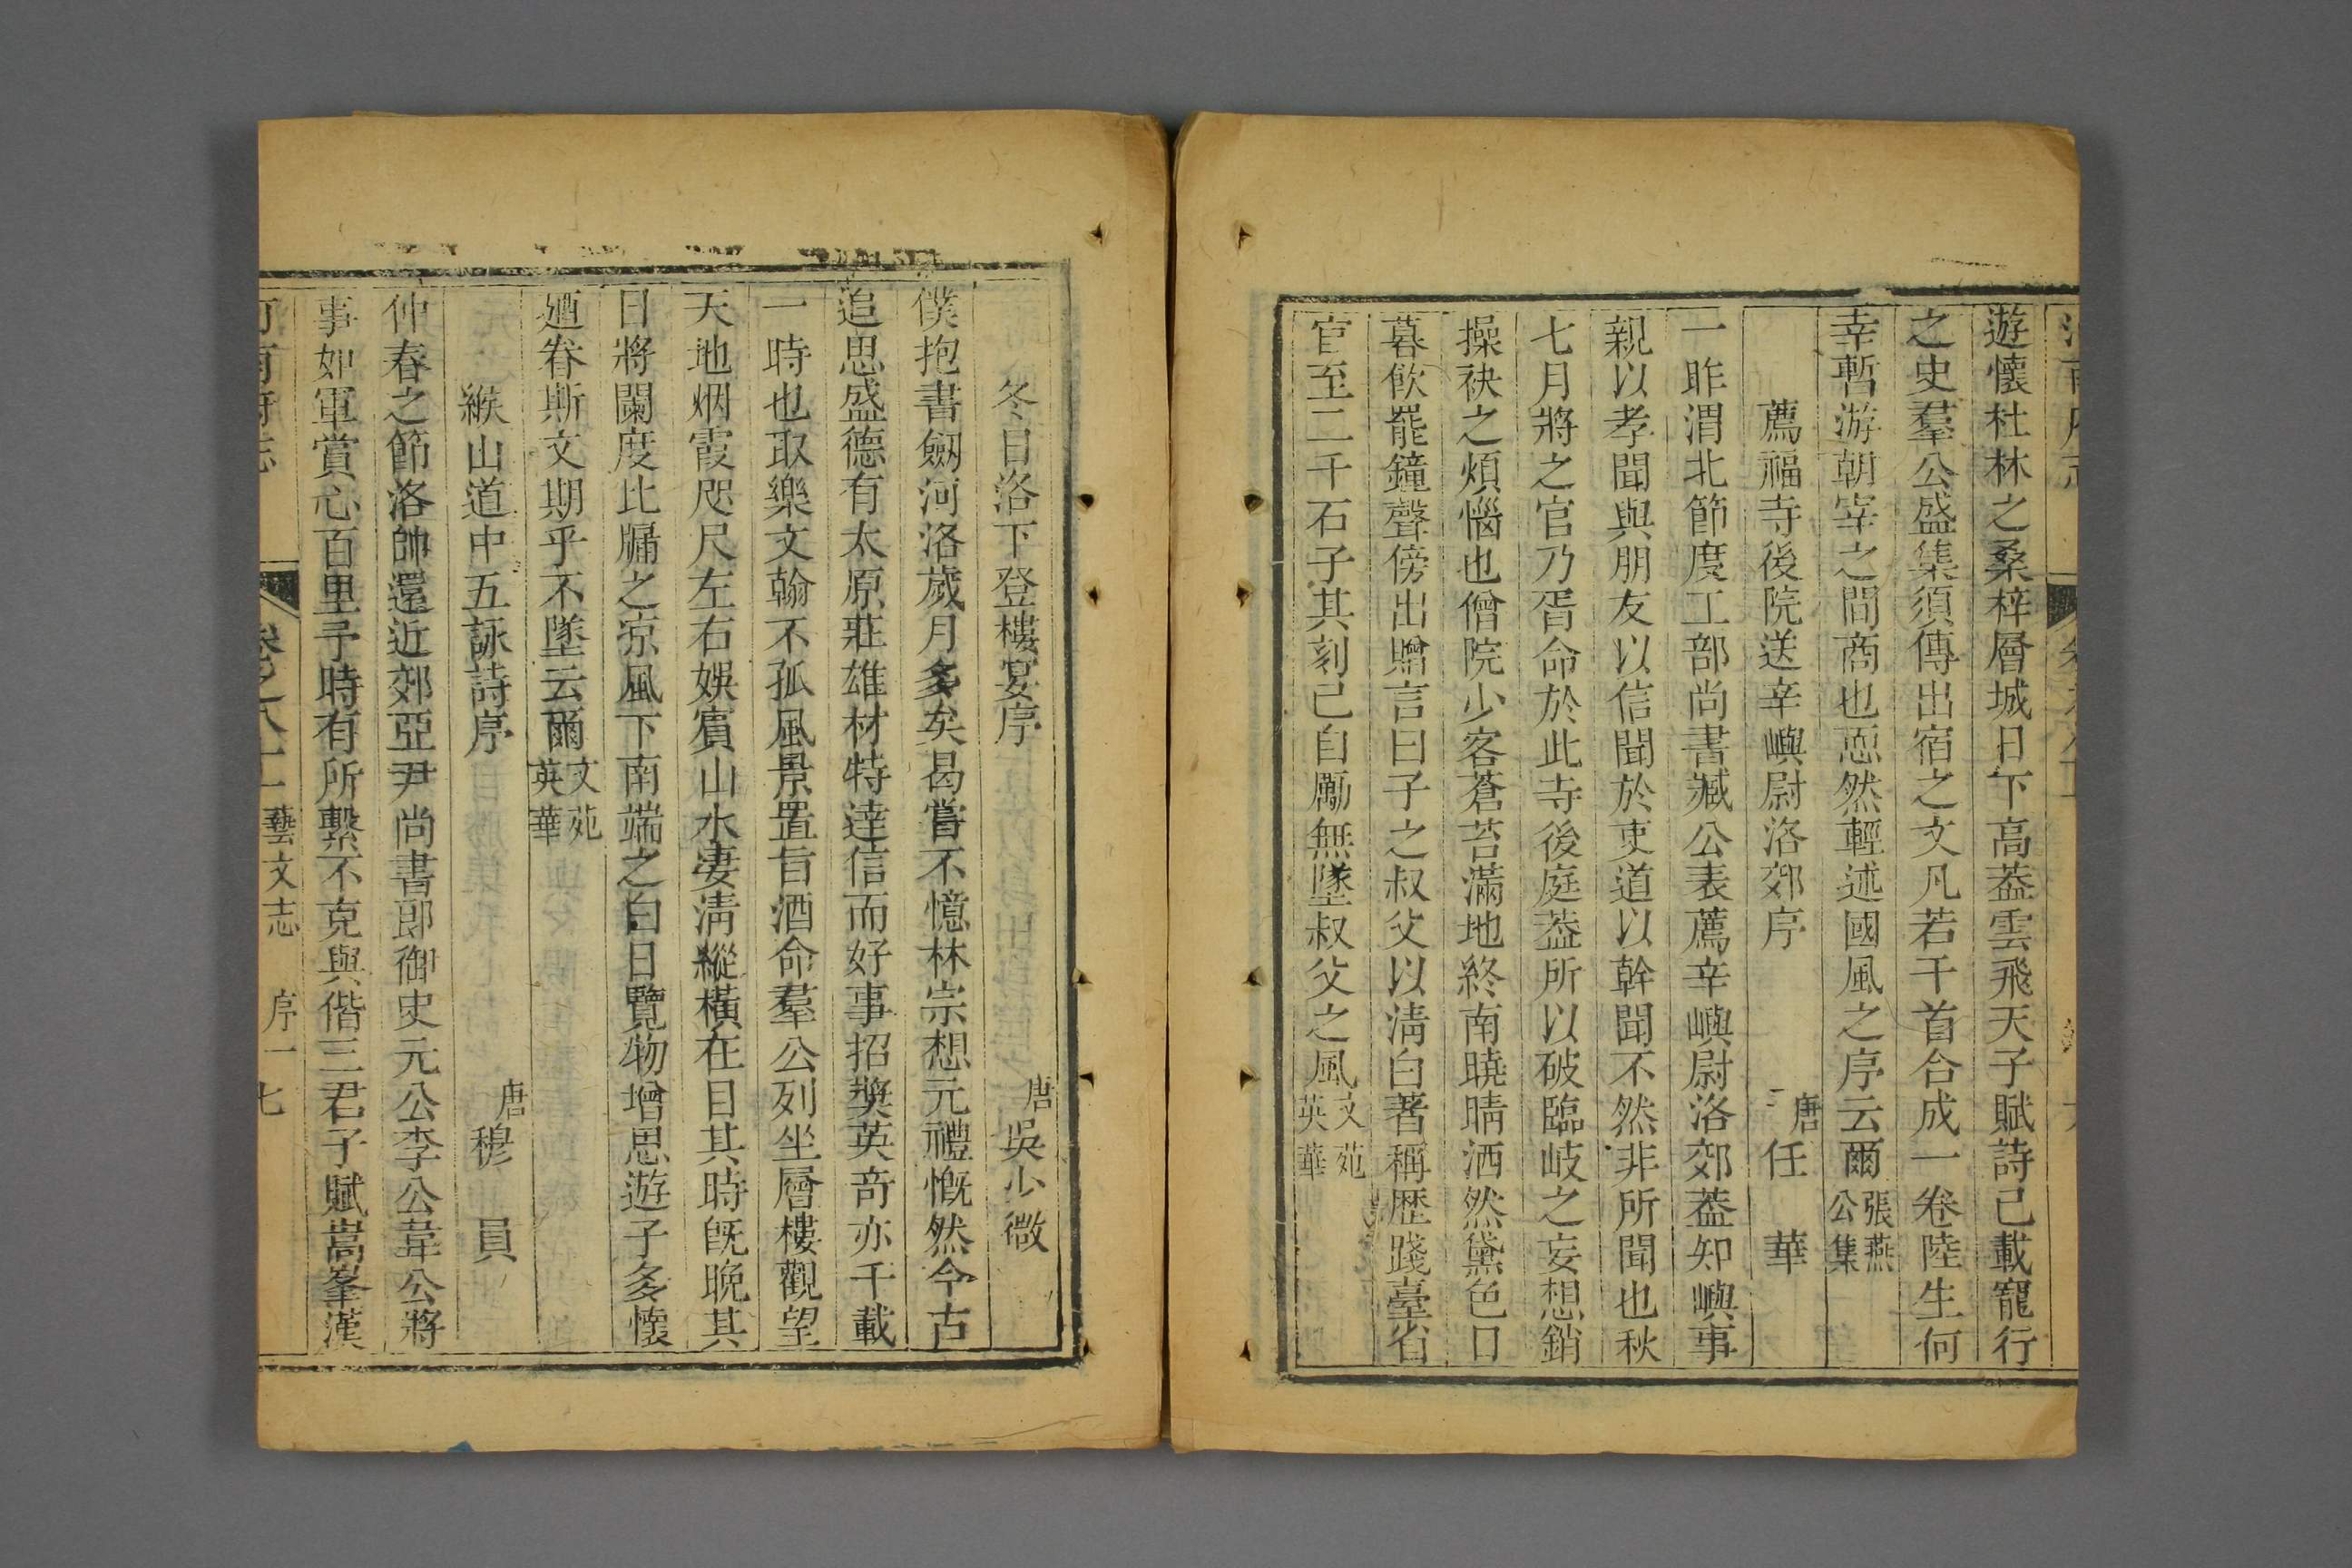 遊懷杜林之桑梓層城日下高葢雲飛天子賦詩已載寵行
之史羣公盛集須傳出宿之文凡若干首合成一卷陸生何
幸暫游朝宰之間商也恧然輕述國風之序云爾張燕公集
薦福寺後院送辛嶼尉洛郊序 唐任華
一昨渭北節度工部尚書臧公表薦辛嶼尉洛郊葢知嶼事
親以孝聞與朋友以信聞於吏道以幹聞不然非所聞也秋
七月將之官乃胥命於此寺後庭葢所以破臨岐之妄想銷
操袂之煩惱也僧院少客蒼苔滿地終南曉晴洒然黛色日
暮飲罷鐘聲傍出贈言曰子之叔父以清白著稱歷踐臺省
官至二千石子其刻己自勵無墜叔父之風文苑英華
冬日洛下登樓宴序 唐吳少微
僕抱書劔河洛歲月多矣曷嘗不憶林宗想元禮慨然今古
追思盛德有太原莊雄材特達信而好事招奬英奇亦千載
一時也取樂文翰不孤風景置旨酒命羣公列坐層樓觀望
天地烟霞咫尺左右娛賓山水凄清縱橫在目其時旣晚其
日將闌度比牖之凉風下南端之白日覽物增思遊子多懷
廼眷斯文期乎不墜云爾文苑英華
緱山道中五詠詩序 唐穆員
仲春之節洛帥還近郊亞尹尚書郎御史元公李公韋公將
事如軍賞心百里予時有所繫不克與偕三君子賦嵩峯漢
河南府志 卷之八十一 藝文志 序一 七